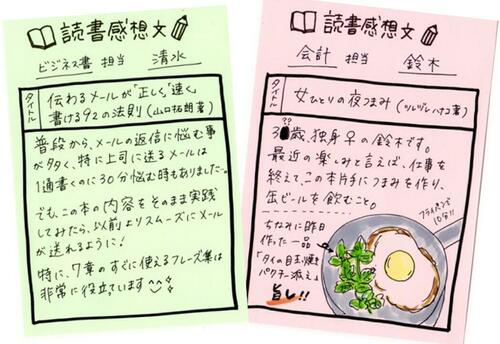 読書感想文
ビジネス書 担当 清水
タイトル
伝わるメールが「正しく」「速く」
書ける92の法則(山口拓朗著)
普段から、メールの返信に悩む事
が多く、特に上司に送るメールは
1通書くのに30分悩む時もありました…。
でも、この本の内容をそのまま実践
してみたら、以前よりスムーズにメール
が送れるように!
特に、7章のすぐに使えるフレーズ集は
非常に役立っています^^
読書感想文
会計 担当 鈴木
タイトル
女ひとりの夜つまみ(ツレヅレハナコ著)
??
3 歳、独身♀の鈴木です。
最近の楽しみと言えば、仕事を
終えて、この本片手につまみを作り、
缶ビールを飲むこと。
フライパンで
10分!!
ちなみに昨日
作った一品
「タイの目玉焼き
パクチー添え」
旨し!!